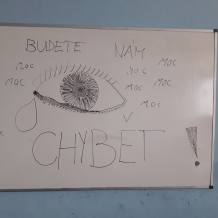 BUDETE NÁM
MOC MOC
MOC MOC MOC
MOC MOC
CHYBET !